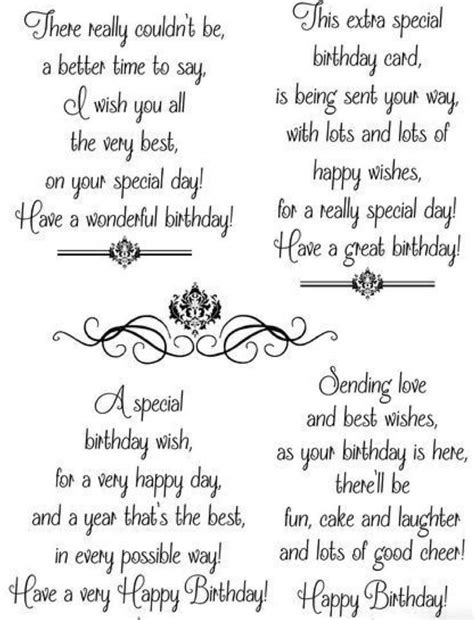 There really couldn't be,
a better time to say,
I wish you all
the very best,
on your special day!
Have a wonderful birthday!
This extra special
birthday card,
is being sent your way,
with lots and lots of
happy wishes,
for a really special day!
Have a great birthday!
A special
birthday wish,
for a very happy day,
and a year that's the best,
in every possible way!
Have a very Happy Birthday!
Sending love
and best wishes,
as your birthday is here,
there'll be
fun, cake and laughter
and lots of good cheer!
Happy Birthday!